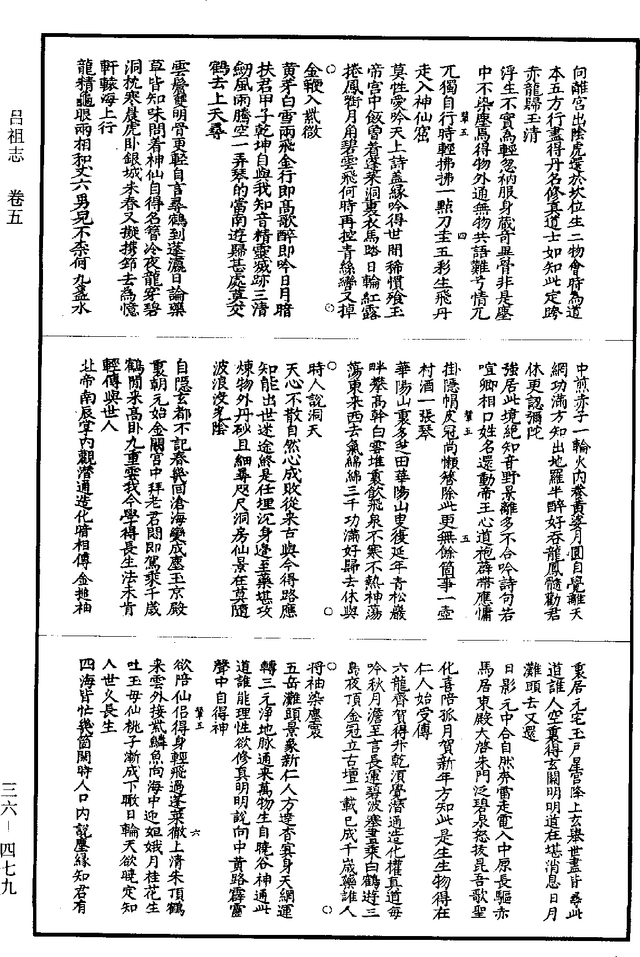 向離宮出陰虎還於坎位生二物會時為道
本五方行盡得丹名修真道士如知此定跨
赤龍歸玉清
浮生不實為輕忽衲服身藏奇異骨非是塵
中不染塵焉得物外通無物共語難兮情兀
第五 四
兀獨自行時輕拂拂一點刀圭五彩生飛丹
走入神仙窟
莫怪愛吟天上詩蓋緣吟得世間稀慣飡玉
帝宮中飯曾著蓬萊洞裏衣馬踏日輪紅露
捲鳳銜月角碧雲飛何時再控青絲轡又掉
金鞭入紫微
黃芽白雪兩飛金行即高歌醉即吟日月暗
扶君甲子乾坤自與我知音精靈滅跡三清
劒風雨騰空一弄琴的當南遊歸甚處莫交
鶴去上天尋
雲鬢雙明骨更輕自言尋鶴到蓬瀛日論藥
草皆知味問著神仙自得名簪冷夜龍穿碧
洞枕寒晨虎臥銀城來春又擬攜筇去為憶
軒轅海上行
龍精龜眼兩相和丈六男兒不奈何九盞水
中煎赤子一輪火內養黃婆月圓自覺離天
網功滿方知出地羅半醉好吞龍鳳髓勸君
休更認彌陀
強居此境絕知音野景雖多不合吟詩句若
喧卿相口姓名還動帝王心道袍薜帶應慵
第五 五
掛隱帽皮冠尚懶簪除此更無餘箇事一壺
村酒一張琴
華陽山裏多芝田華陽山叟復延年青松巖
畔攀高幹白雲堆裏飲飛泉不寒不熱神蕩
蕩東來西去氣綿綿三千功滿好歸去休與
時人說洞天
天心不散自然心成敗從來古與今得路應
知能出世迷途終是任埋沉身邊至藥堪攻
煉物外丹砂且細尋咫尺洞房仙景在莫隨
波浪沒光陰
自隱玄都不記春幾回滄海變成塵玉京殿
裏朝元始金闕宮中拜老君悶即駕乘千歲
鶴閒來高臥九重雲我今學得長生法未肯
輕傳與世人
北帝南辰掌內觀潛通造化暗相傳金槌袖
裏居元宅玉戶星宮降上玄舉世盡皆尋此
道誰人空裏得玄關明明道在堪消息日月
灘頭去又還
日影元中合自然奔雷走電入中原長驅赤
馬居東殿大啓朱門泛碧泉怒拔昆吾歌聖
化喜陪孤月賀新年方知此是生生物得在
仁人始受傳
六龍齊賀得昇乾須覺潛通造化權真道每
吟秋月澹至言長運碧波寒晝乘白鶴遊三
島夜頂金冠立古壇一載已成千歲藥誰人
將袖染塵寰
五岳灘頭景象新仁人方達杳冥身天網運
轉三元淨地脉通來萬物生自曉谷神通此
道誰能理性欲修真明明說向中黃路霹靂
聲中自得神
第五 六
欲陪仙侶得身輕飛過蓬萊徹上清朱頂鶴
來雲外接紫鱗魚向海中迎姮娥月桂花生
吐王母仙桃子漸成下瞰日輪天欲曉定知
人世久長生
四海皆忙幾箇閑時人口內說塵緣知君有
呂祖志 卷五
三六-四七九